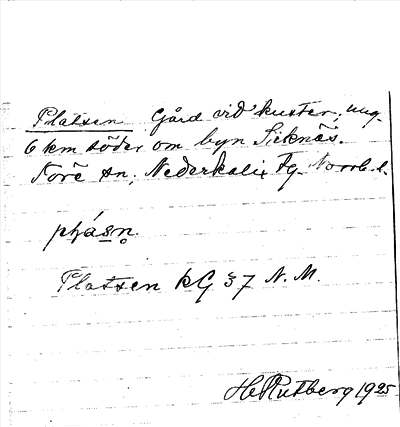 Platsen Gård vid kusten, ung.
6 km söder om byn Siknäs.
Töre sn, Nederkalix tg. Norrb. l.
Platsen kG 37 N. M.
H Rutberg 1925